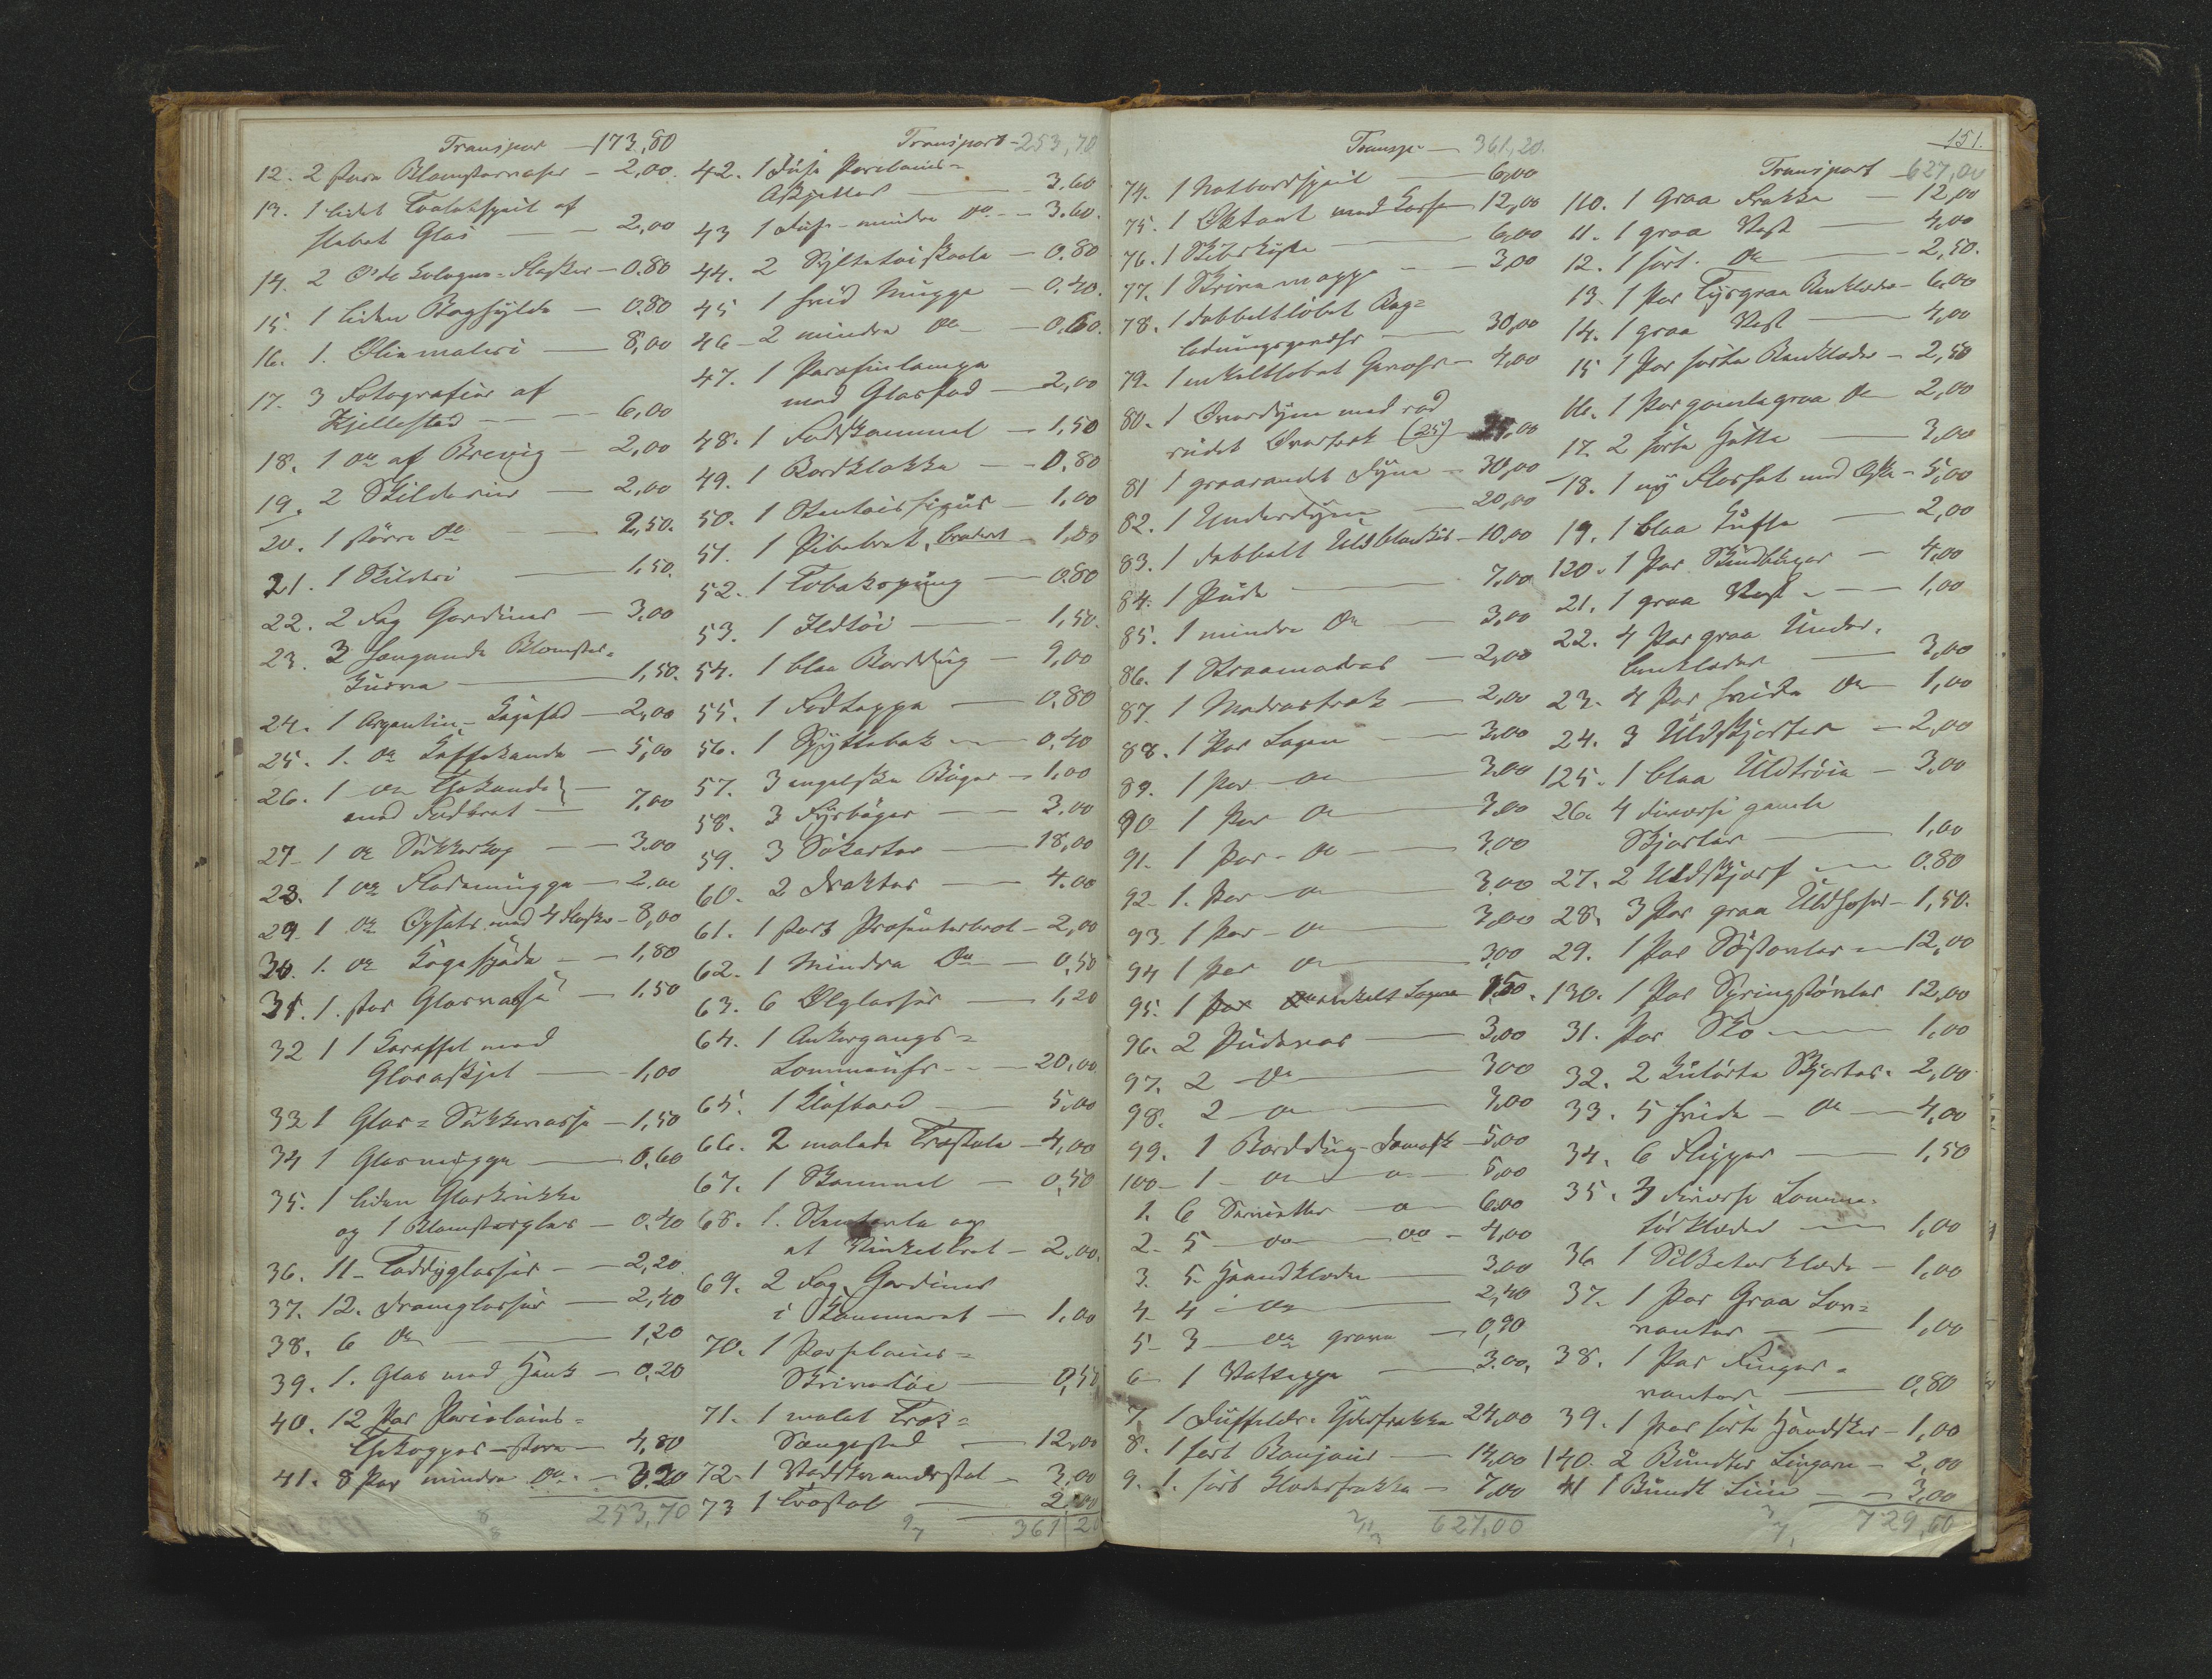 Transport - 173,80
12. 2 store Blomstervaser - 2,00.
13. 1 lidet Toiletspeil af
slebet Glas - 2,00
14. 2 O'de Cologne-Flasker - 0.80
15. 1 liden Boghylde - 0.80
16. 1. Oliemaleri - 8,00
17. 3 Fotografier af
Kjellestad - 6,00
18. 1 do af Brevig - 2,00
19. 2 Skilderier - 2,00
20. 1 større Do - 2,50.
21. 1 Skilderi - 1,50.
22. 2 Fag Gardiner - 3,00
23. 3 hængende Blomster-
Kurve - 1,50.
24. 1 Argentin- Kagefad - 2,00
25. 1. do Kaffekande - 5,00
26. 1 do Thekande
med Fadbret - 7,00
27. 1 do Sukkerkop - 3.00
28. 1 do Flødemugge - 2,00
29. 1 do Opsats med 4 Flasker - 8,00
30. 1. do Kagespade - 1,80
31. 1. stor Glasvase - 1,50
32 1 Karaffel med
Glasaskjet - 1,00
33 1 Glas- Sukkervase - 1,50
34 1 Glasmugge - 0,60
35. 1 liden Glaskrukke
og 1 Blomsterglas - 0,40
36. 11- Toddyglasser - 2,20
37. 12. Dramglasser - 2,40
38. 6 do - 1,20
39. 1. Glas med Hank - 0,20
40. 12 Par Porcelains-
Thekopper - store - 4,80
41. 8 Par mindre Do. - 3.20
253,70
Transport - 253,70
42. 1 Dusin Porcelains-
Askjetter - 3.60
43 1 Dusin mindre do - 3.60.
44. 2 Syltetøiskaale - 0.80
45 1 hvid Mugge - 0.40.
46 - 2 mindre do - 0,60.
47. 1 Parafinlampe
med Glasfod - 2,00
48. 1 Fodskammel - 1,50
49. 1 Bordklokke - 0.80
50. 1 Kontoirfigur - 1,00
51. 1 Pibebret, broderet - 1,00
52. 1 Tobakspung - 0.80
53. 1 Ildtøi - 1,50.
54. 1 blaa Borddug - 9,00
55. 1 Fodtæppe - 0,80
56. 1 Spyttebak - 0,40
57. 3 engelske Bøger - 1,00
58. 3 Fyrbøger - 3.00
59. 3 Søkarter - 18,00
60. 2 Drakter - 4.00
61. 1 stort Præsenterbret - 2,00
62. 1 Mindre Do - 0,50
63. 6 Ølglasser - 1,20
64. 1 Ankergangs-
Lommeuhr - 20,00
65. 1 Kløfbord - 5,00
66. 2 malede Træstole - 4,00
67. 1 Skammel - 0,50
68. 1. og
et Vinkelbret - 2,00.
69. 2 Fag Gardiner
i Kammeret - 1,00
70. 1 Porselains-
Skrivetøi - 0,50
71. 1 malet Træ-
Sængested - 12,00
72. 1 Vadskevandsstol - 3,00
73 1 Træstol - 2,00
361,20
Transp. - 361,20.
74. 1 Natbordspeil - 6,00
75. 1 Oktant med Kasse - 12,00
76. 1 Skibskiste - 6,00
77. 1 Skrivemappe - 3,00
78. 1 dobbeltløbet Bag-
ladningsgevær - 30,00
79. 1 enkeltløbet Gevær - 4,00
80. 1 Overdyne med rød
rudet Overtræk (25) 25,00
81 1 graarandet Dyne - 30,00
82. 1 Underdyne - 20,00
83. 1 dobbelt Uldblanket - 10,00
84. 1 Pude - 7,00
85. 1 mindre Do - 3,00
86. 1 Straamadras - 2,00
87. 1 Madrastræk - 2,00
88. 1 Par Lagen - 3,00
89. 1 Par do - 3.00
90 1 Par do - 3,00
91. 1 Par - do - 3,00
92. 1. Par - do - 3,00
93. 1 Par - do - 3,00
94 1 Par do - 3,00
95. 1 Par do enkelt Lagen 1,50.
96. 2 Pudevar - 3,00
97. 2 - do - 3,00
98. 2 - do - 3,00
99. 1 Borddug - Damask - 5,00
100 - 1 - do - do - 5,00
1. 6 Servietter - do - 6.00
2. 5 - do - do - 4,00
3. 5 Haandklæde - 3.00
4. 4 - do - 2,40
5 - 3 - do grove - 0,90
6 1 Vattæppe - 3.00.
7 1 Düffels- Yderfrakke 24,00
8. 1 sort Bonjour - 14,00
9. 1. sort Klædesfrakke - 7,00
627,00
151.
Transport - 627,00
110. 1 Graa Frakke - 12,00
11. 1 graa Vest - 4,00
12. 1 sort. do - 2,50.
13. 1 Par lysgraa Benklæder - 6.00
14. 1 graa Vest - 4,00
15 1 Par sorte Benklæder - 2,50
16. 1 Par gamle graa Do - 2,00
17. 2 sorte Hatte - 3,00
18. 1 ny Floshat med Æske - 5,00
19. 1 blaa Kufte - 2,00
120. 1 Par Skindbuxer - 4,00
21. 1 graa Vest - 1,00
22. 4 Par graa Under-
benklæder - 3,00
23. 4 Par hvide do - 1,00
24. 3 Uldskjorter - 2,00
125. 1 blaa Uldtrøie - 3,00
26. 4 diverse gamle
Skjorter - 1,00
27. 2 Uldskjerf - 0.80
28. 3 Par graa Uldhoser - 1,50.
29. 1 Par Søstøvler - 12,00
130. 1 Par Springstøvler 12,00
31. Par Sko - 1,00
32. 2 Kulørte Skjorter - 2,00
33. 5 hvide - do - 4,00
34. 6 Flipper - 1,50
35. 3 diverse Lomme-
tørklæder - 1,00
36. 1 Silketørklæde - 1,00
37. 1 Par Graa Lov-
vanter - 1,00
38. 1 Par Finger-
vanter - 0,80
39. 1 Par sorte Handsker - 1,00
140. 2 Bundter Lingarn - 2,00
41 1 Bundt Liin - 3,00
729,60